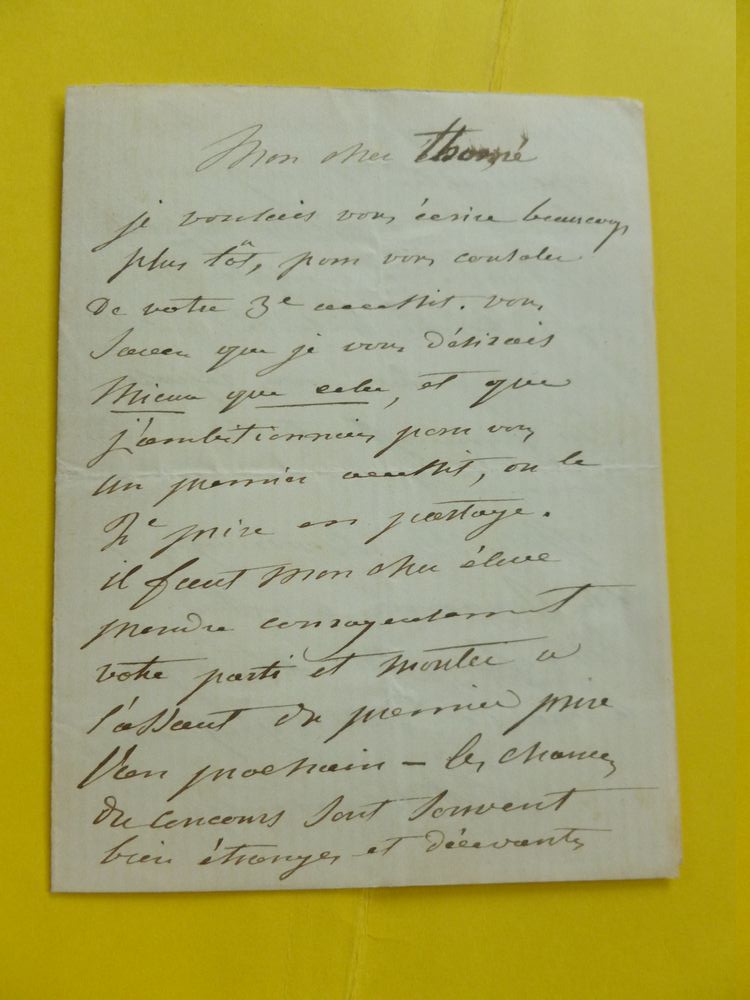 Mon cher Thomé
je voulais vous écrire beaucoup
plus tôt, pour vous consoler
De votre 3e accessit. vous
Savez que je vous désirais
Mieux que cela, et que
j'ambitionnais pour vous
un premier accessit, ou le
2e prix en partage.
il faut Mon cher élève
prendre courageusement
votre parti et monter a
l'assaut du premier prix
l'an prochain – les chances
du Concours Sont Souvent
bien étranges et décevantes